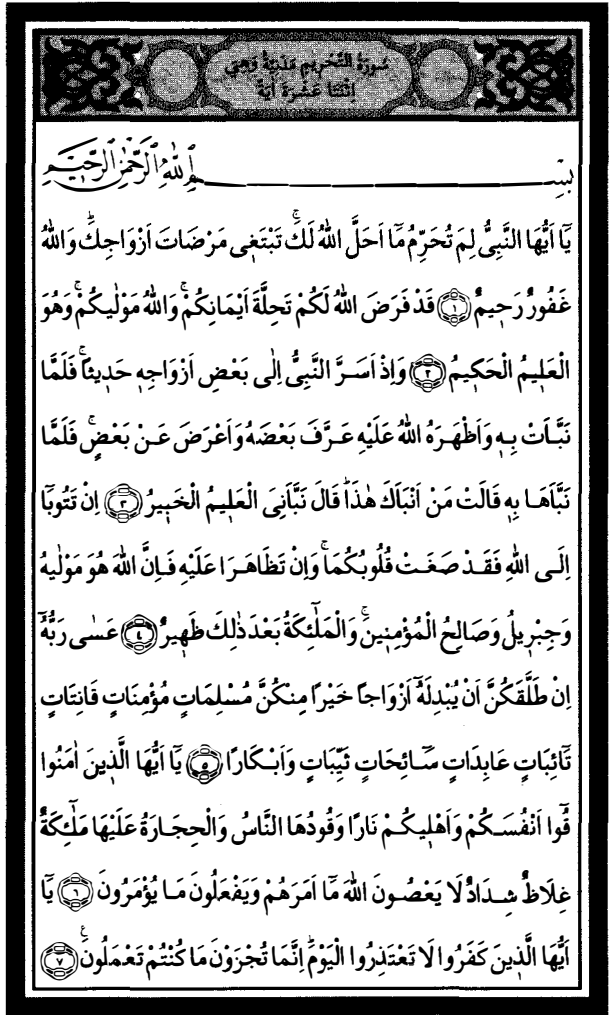 سُورَةُ التَّحْرِيمِ مَدَنِيَّةٌ وَهِيَ
اِثْنَتَا عَشْرَةَ اٰيَةً
بِسْمِ اللّٰهِ الرَّحْمٰنِ الرَّحِيمِ
يَٓا اَيُّهَا النَّبِيُّ لِمَ تُحَرِّمُ مَٓا اَحَلَّ اللّٰهُ لَكَۚ تَبْتَغ۪ي مَرْضَاتَ اَزْوَاجِكَۜ وَاللّٰهُ
غَفُورٌ رَح۪يمٌ ﴿١﴾ قَدْ فَرَضَ اللّٰهُ لَكُمْ تَحِلَّةَ اَيْمَانِكُمْۚ وَاللّٰهُ مَوْلٰيكُمْۚ وَهُوَ
الْعَل۪يمُ الْحَك۪يمُ ﴿٢﴾ وَاِذْ اَسَرَّ النَّبِيُّ اِلٰى بَعْضِ اَزْوَاجِه۪ حَد۪يثًاۚ فَلَمَّا
نَبَّاَتْ بِه۪ وَاَظْهَرَهُ اللّٰهُ عَلَيْهِ عَرَّفَ بَعْضَهُ وَاَعْرَضَ عَنْ بَعْضٍۚ فَلَمَّا
نَبَّاَهَا بِه۪ قَالَتْ مَنْ اَنْبَاَكَ هٰذَاۜ قَالَ نَبَّاَنِيَ الْعَل۪يمُ الْخَب۪يرُ ﴿٣﴾ اِنْ تَتُوبَٓا
اِلَى اللّٰهِ فَقَدْ صَغَتْ قُلُوبُكُمَاۚ وَاِنْ تَظَاهَرَا عَلَيْهِ فَاِنَّ اللّٰهَ هُوَ مَوْلٰيهُ
وَجِبْر۪يلُ وَصَالِحُ الْمُؤْمِن۪ينَۚ وَالْمَلٰٓئِكَةُ بَعْدَ ذٰلِكَ ظَه۪يرٌ ﴿٤﴾ عَسٰى رَبُّهُٓ
اِنْ طَلَّقَكُنَّ اَنْ يُبْدِلَهُٓ اَزْوَاجًا خَيْرًا مِنْكُنَّ مُسْلِمَاتٍ مُؤْمِنَاتٍ قَانِتَاتٍ
تَٓائِبَاتٍ عَابِدَاتٍ سَٓائِحَاتٍ ثَيِّبَاتٍ وَاَبْكَارًا ﴿٥﴾ يَٓا اَيُّهَا الَّذ۪ينَ اٰمَنُوا
قُٓوا اَنْفُسَكُمْ وَاَهْل۪يكُمْ نَارًا وَقُودُهَا النَّاسُ وَالْحِجَارَةُ عَلَيْهَا مَلٰٓئِكَةٌ
غِلَاظٌ شِدَادٌ لَا يَعْصُونَ اللّٰهَ مَٓا اَمَرَهُمْ وَيَفْعَلُونَ مَا يُؤْمَرُونَ ﴿٦﴾ يَٓا
اَيُّهَا الَّذ۪ينَ كَفَرُوا لَا تَعْتَذِرُوا الْيَوْمَۜ اِنَّمَا تُجْزَوْنَ مَا كُنْتُمْ تَعْمَلُونَ۟ ﴿٧﴾